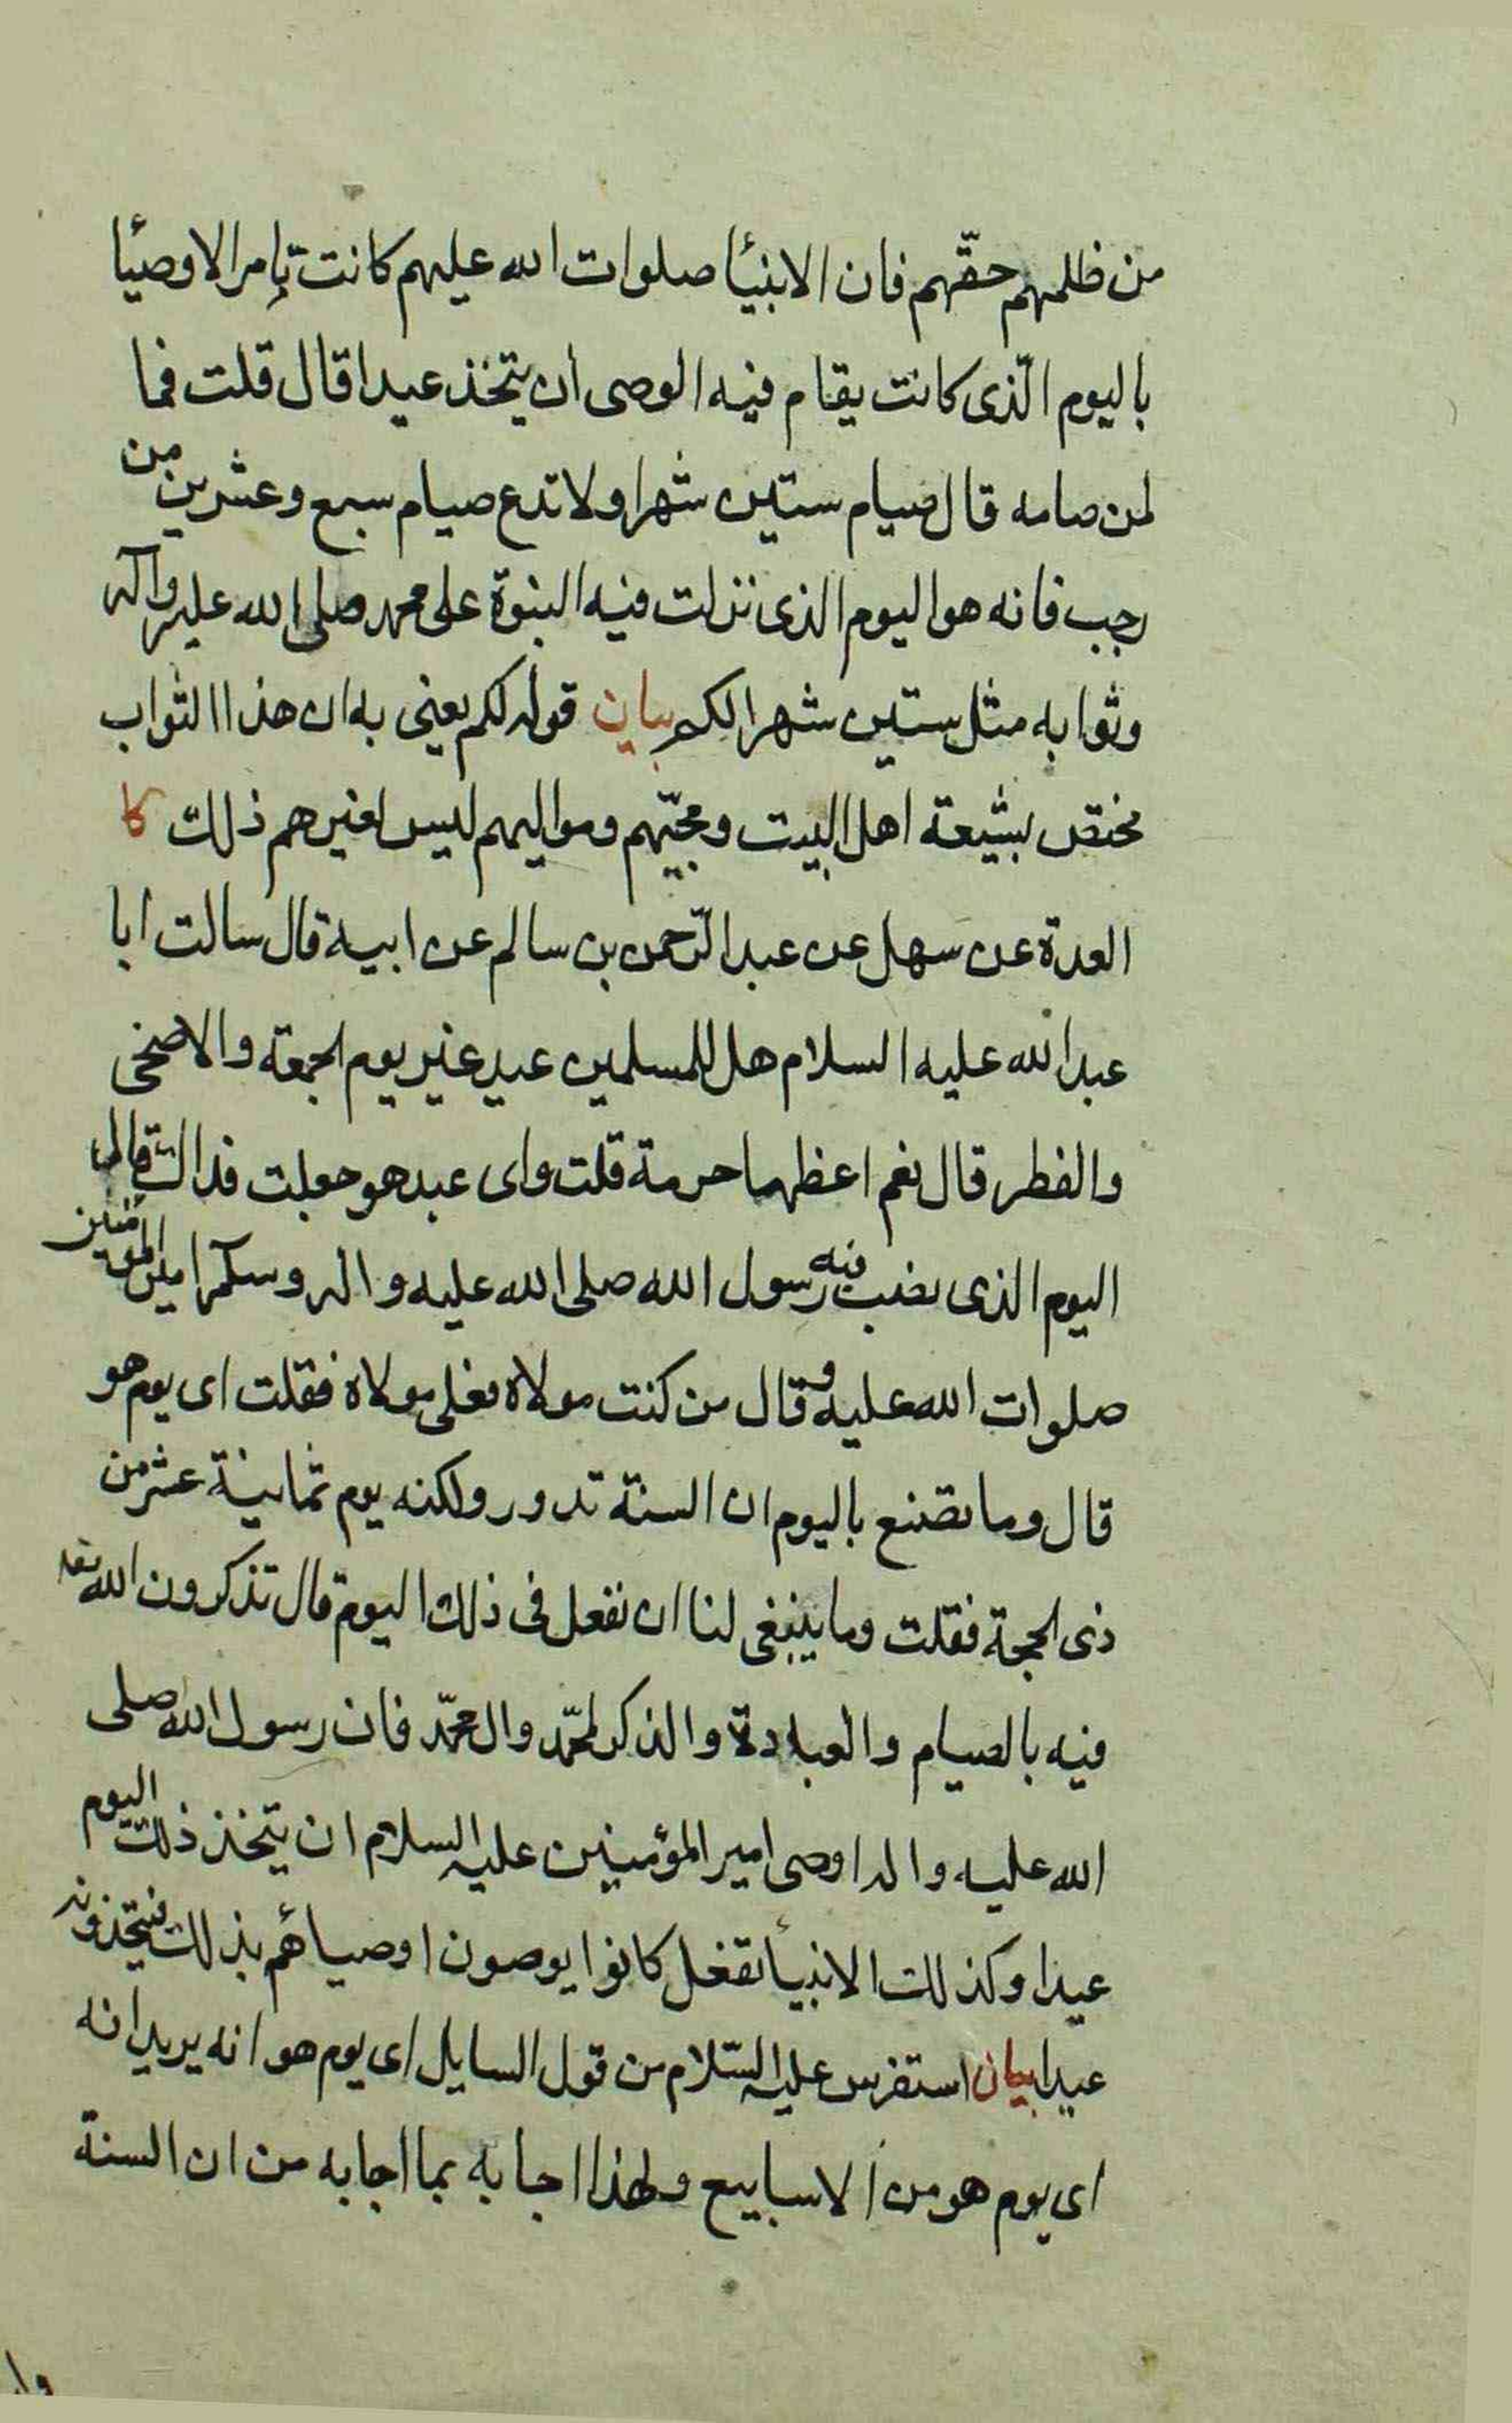 من ظلمهم حقّهم فان الانبئا صلوات الله عليهم كانت تأمر الاوصئا
باليوم الّذى كانت يقام فيه الوصى ان يتخذ عيدا قال قلت فما
لمن صامه قال صيام ستين شهرا ولا تدع صيام سبع وعشرين من
رجب فانه هو اليوم الذى نزلت فيه النبوة على محمد صلى الله عليه وآله
وثوابه مثل ستين شهرا لكم بيان قوله لكم يعنى به ان هذا الثواب
مختص بشيعة اهل البيت ومحبّيهم ومواليهم ليس لغيرهم ذلك كا
العدة عن سهل عن عبد الرّحمن بن سالم عن ابيه قال سالت ابا
عبد الله عليه السلام هل للمسلمين عيد غير يوم الجمعة والاضحى
والفطر قال نعم اعظمها حرمة قلت واى عيد هو جعلت فداك قال
اليوم الذى نصب فيه رسول الله صلى الله عليه واله وسلم امير المؤمنين
صلوات الله عليه وقال من كنت مولاه فعلى مولاه فقلت اى يوم هو
قال وما تصنع باليوم ان السنة تدور ولكنه يوم ثمانية عشر من
ذى الحجة فقلت وما ينبغى لنا ان نفعل فى ذلك اليوم قال تذكرون الله تعه
فيه بالصيام والعبادة والذكر لمحمّد وال محمّد فان رسول الله صلى
الله عليه واله اوصى امير المؤمنين عليه السلام ان يتخذ ذلك اليوم
عيدا وكذلك الانبئا تفعل كانوا يوصون اوصيائهم بذلك فيتخذونه
عيدا بيان استفرس عليه السّلام من قول السايل اى يوم هو انه يريد انه
اى يوم هو من الاسابيع ولهذا اجابه بما اجابه من ان السنة